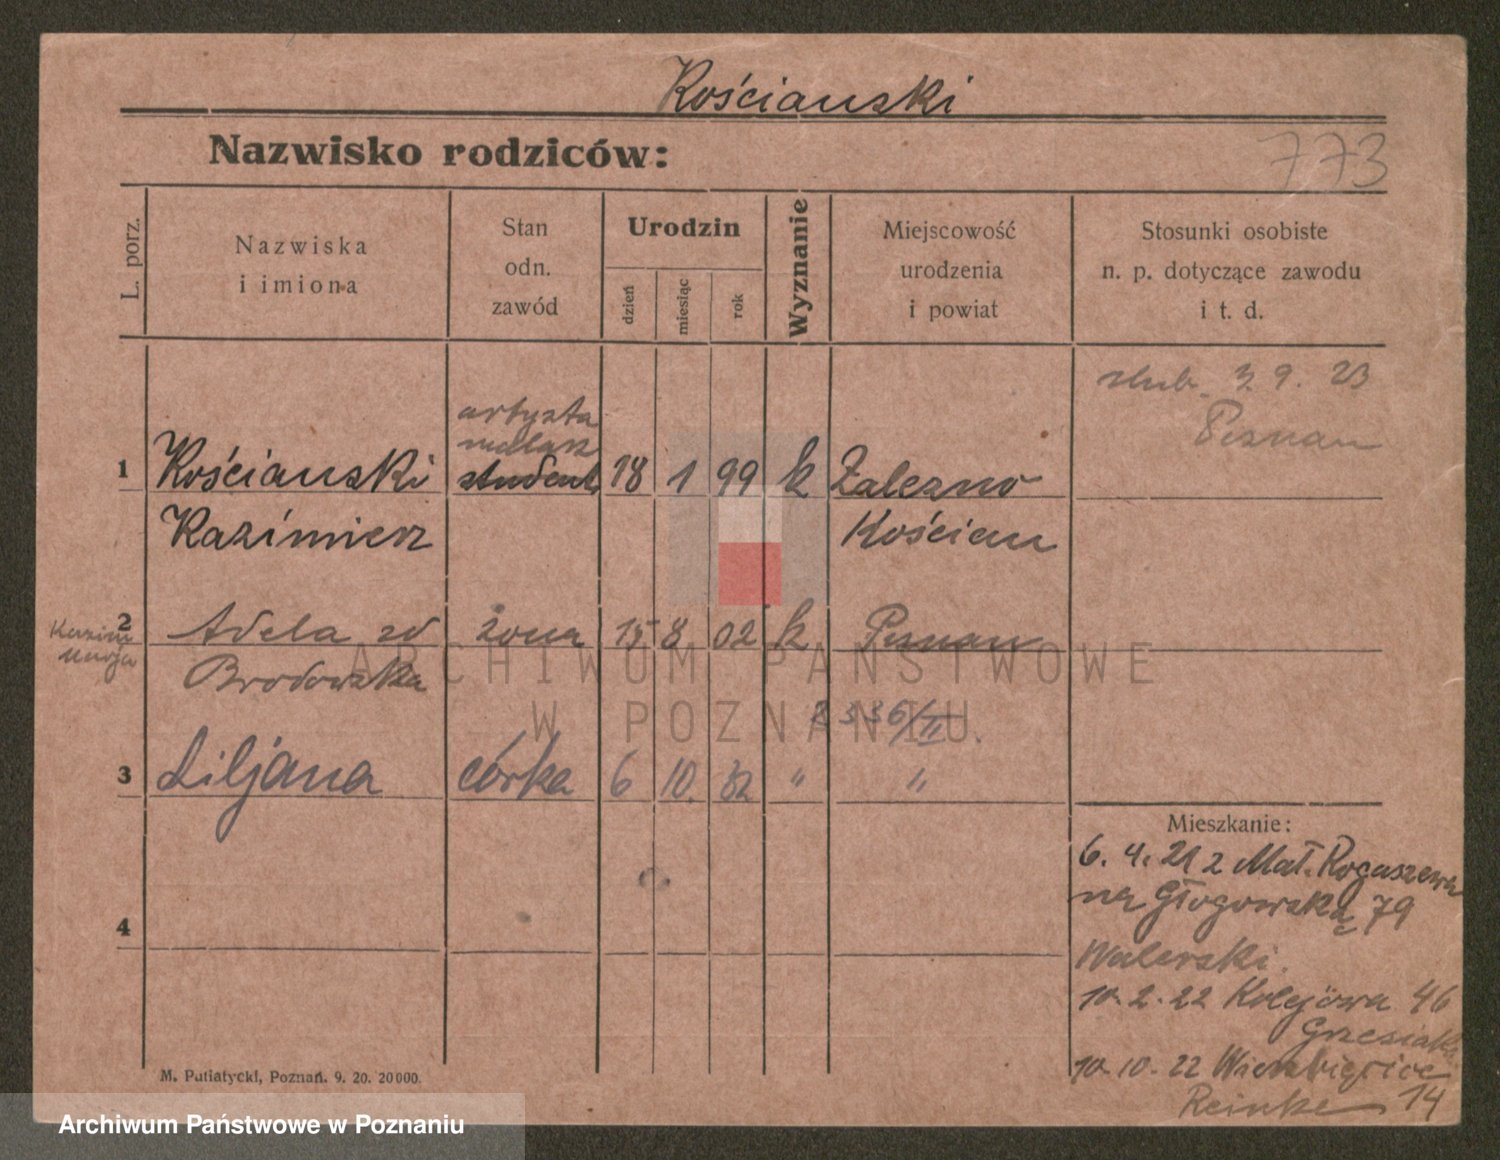 Kościański
Nazwisko rodziców:
773
L. porz.
Nazwiska
i imiona
Stan
odn.
zawód
Urodzin
dzień
miesiąc
rok
Wyznanie
Miejscowość
urodzenia
i powiat
Stosunki osobiste
n. p. dotyczące zawodu
i t. d.
ślub. 3. 9. 23
Poznań
artysta
malarz
1 Kościański student 18 1 99 k Zalezno
Kazimierz Kościan
2 Adela zd żona 15 8 02 k Poznań
Kazim
Marja
Brodowska
ARCHIWUM PAŃSTWOWE
W POZNANIU
3 Liljana córka 6 10. 32 " "
4
Mieszkanie:
6. 4. 21 z Mał. Rogaszewa
na Głogowską 79
Walerski.
10. 2. 22 Kolejowa 46
Grzesiak
10. 10. 22 Wierzbięcice
Reinke 14
M. Putiatycki, Poznań. 9. 20. 20000.
Archiwum Państwowe w Poznaniu